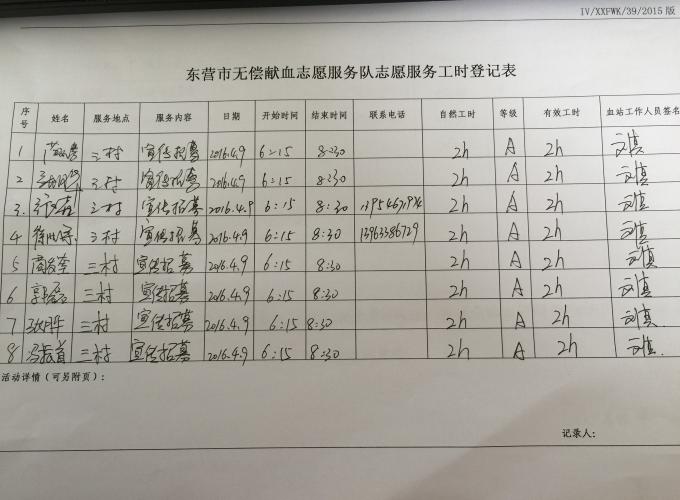 IV/XXFWK/39/2015 版
东营市无偿献血志愿服务队志愿服务工时登记表
序号 姓名 服务地点 服务内容 日期 开始时间 结束时间 联系电话 自然工时 等级 有效工时 血站工作人员签名
1 三村 宣传招募 2016.4.9 6:15 8:30 2h A 2h
2 三村 宣传招募 2016.4.9 6:15 8:30 2h A 2h
3. 三村 宣传招募 2016.4.9 6:15 8:30 2h A 2h
4 三村 宣传招募 2016.4.9 6:15 8:30 13963386729 2h A 2h
5 三村 宣传招募 2016.4.9 6:15 8:30 2h A 2h
6 三村 宣传招募 2016.4.9 6:15 8:30 2h A 2h
7 三村 宣传招募 2016.4.9 6:15 8:30 2h A 2h
8 三村 宣传招募 2016.4.9 6:15 8:30 2h A 2h
活动详情(可另附页):
记录人: